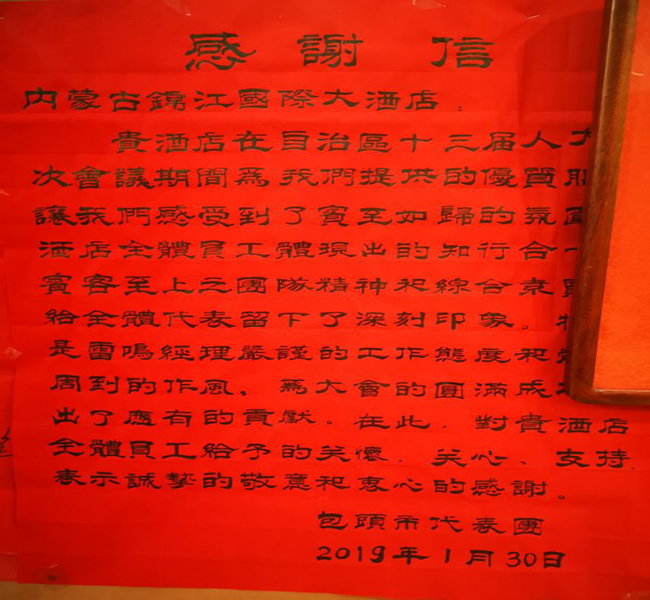 感謝信
内蒙古錦江國際大酒店：
貴酒店在自治區十三届人
次會議期間為我們提供的優質
讓我們感受到了賓至如歸的氛
酒店全體員工體現出的知行合一
賓客至上之團隊精神和綜合素
给全體代表留下了深刻印象。
是雷鳴經理嚴謹的工作態度和
周到的作風，為大會的圓滿成
出了應有的貢獻。在此，對貴酒店
全體員工給予的关懷、关心、支持
表示誠摯的敬意和衷心的感謝。
包頭市代表團
2019年1月30日